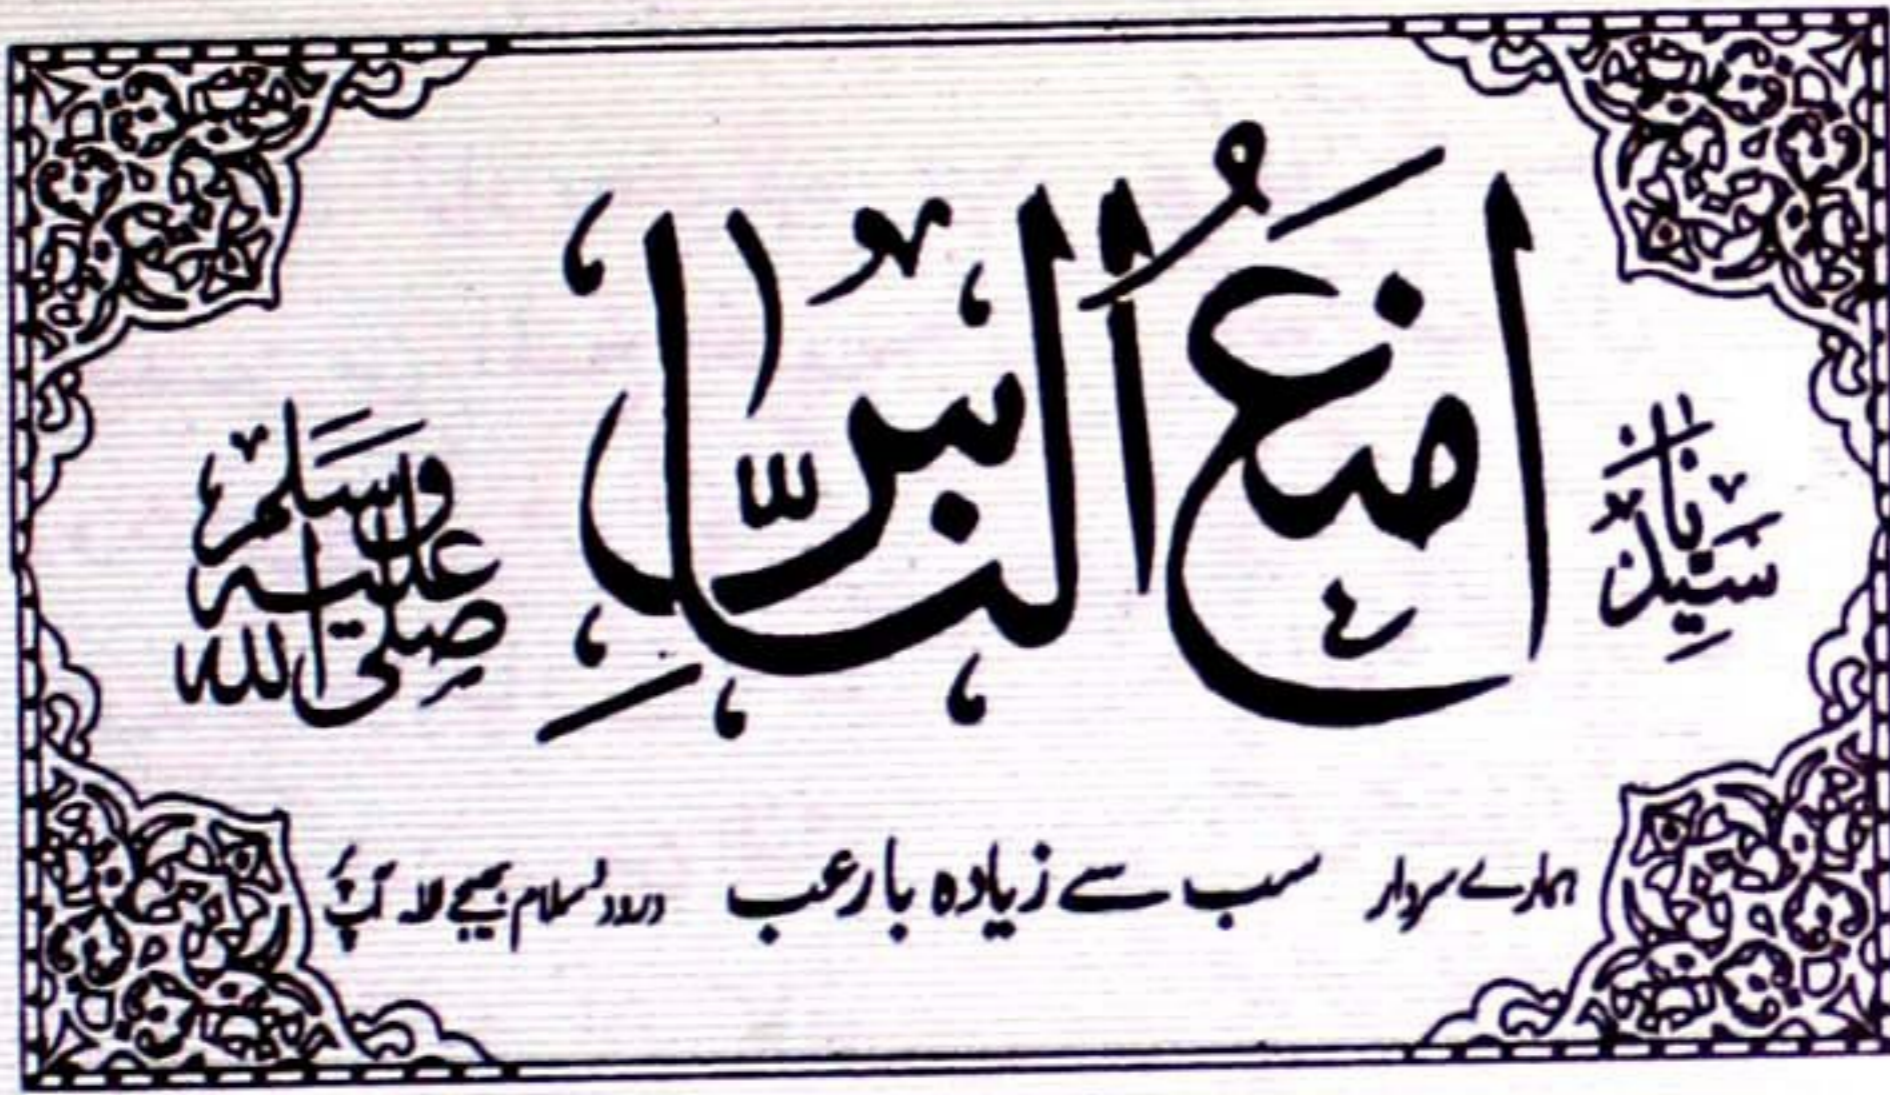 سَيِّدُنَا اَمْنَعُ النَّاسِ صَلَّى اللهُ عَلَيْهِ وَسَلَّمَ
ہمارے سردار سب سے زیادہ بارعب درود و سلام بھیجے اللہ آپؐ پر